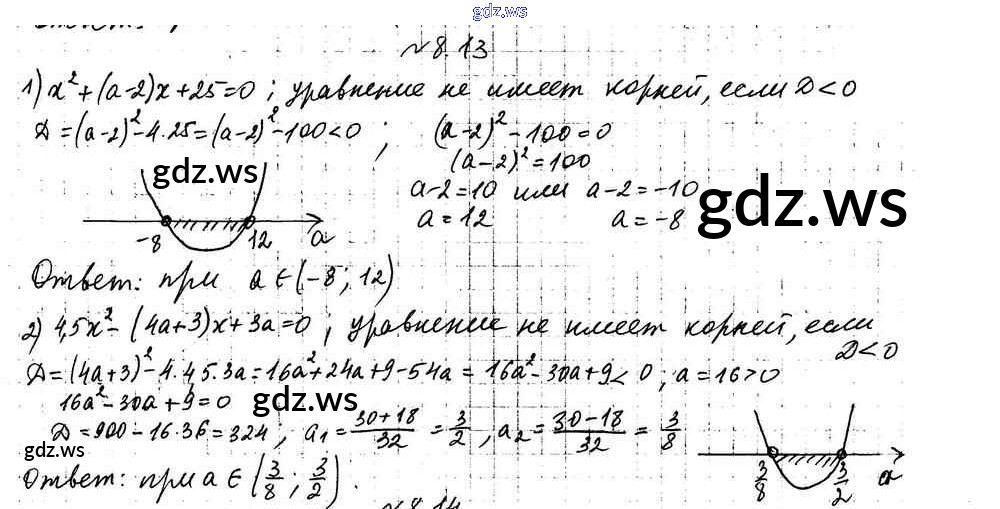 gdz.ws
№ 8.13
1) x² + (a-2)x + 25 = 0 ; уравнение не имеет корней, если D < 0
D = (a-2)² - 4·25 = (a-2)² - 100 < 0 ; (a-2)² - 100 = 0
(a-2)² = 100
gdz.ws
a-2 = 10 или a-2 = -10
gdz.ws
a = 12 a = -8
-8 12 a
Ответ: при a ∈ (-8 ; 12)
2) 4,5x² - (4a+3)x + 3a = 0 ; уравнение не имеет корней, если
D < 0
D = (4a+3)² - 4·4.5·3a = 16a² + 24a + 9 - 54a = 16a² - 30a + 9 < 0 ; a = 16 > 0
16a² - 30a + 9 = 0
gdz.ws
D = 900 - 16·36 = 324 ; a₁ = (30+18)/32 = 3/2 , a₂ = (30-18)/32 = 3/8
gdz.ws
3/8 3/2 a
Ответ: при a ∈ (3/8 ; 3/2) .
№ 8.14